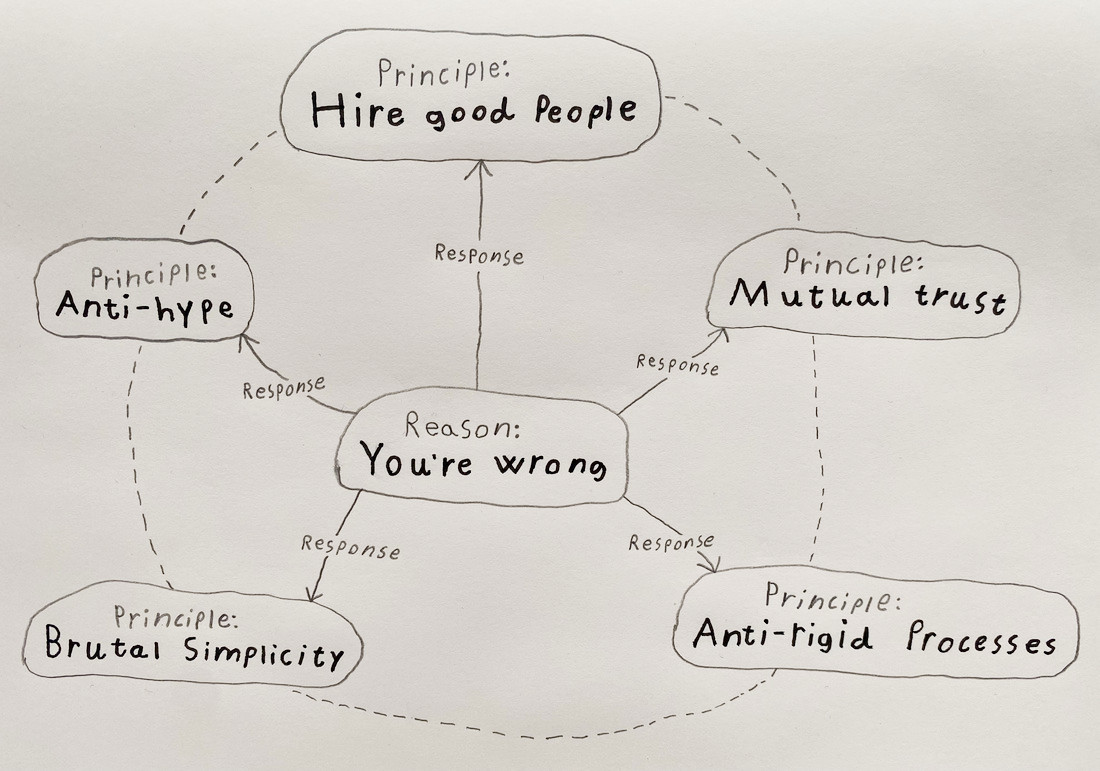 Principle:
Hire good People
Response
Principle:
Anti-hype
Principle:
Mutual trust
Response
Response
Reason:
You're wrong
Response
Response
Principle:
Brutal Simplicity
Principle:
Anti-rigid Processes